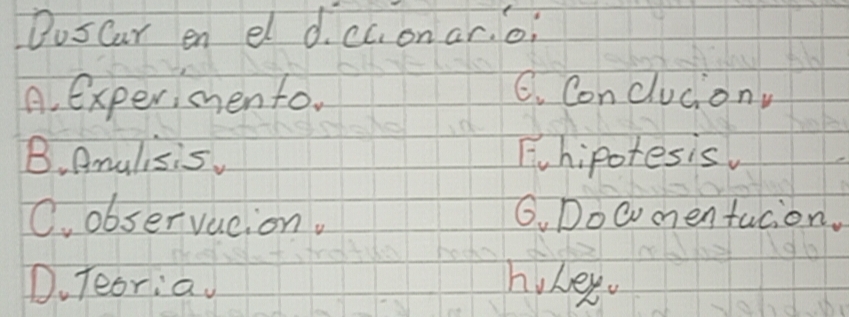 Buscar en el diccionario:
A. Experimento.
B. Analisis.
C. observacion.
D. Teoria.
E. Conclucion.
F. hipotesis.
G. Documentacion.
h. Ley.